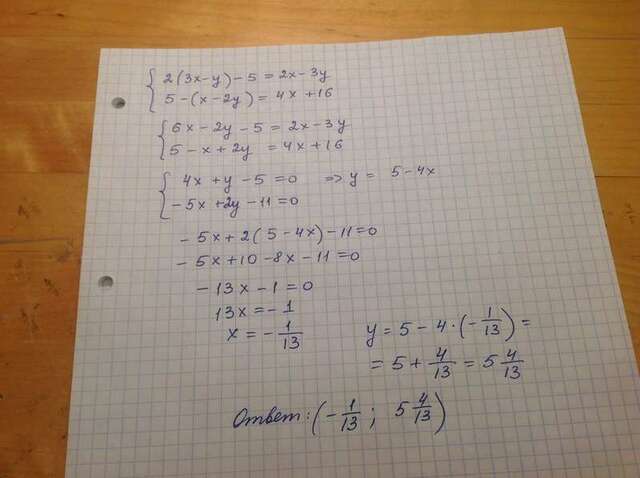 2(3x-y)-5=2x-3y
5-(x-2y)=4x+16
6x-2y-5=2x-3y
5-x+2y=4x+16
4x+y-5=0 => y= 5-4x
-5x+2y-11=0
-5x+2(5-4x)-11=0
-5x+10-8x-11=0
-13x-1=0
13x=-1
x=-1/13
y=5-4·(-1/13)=
=5+4/13=5 4/13
Ответ: (-1/13; 5 4/13)